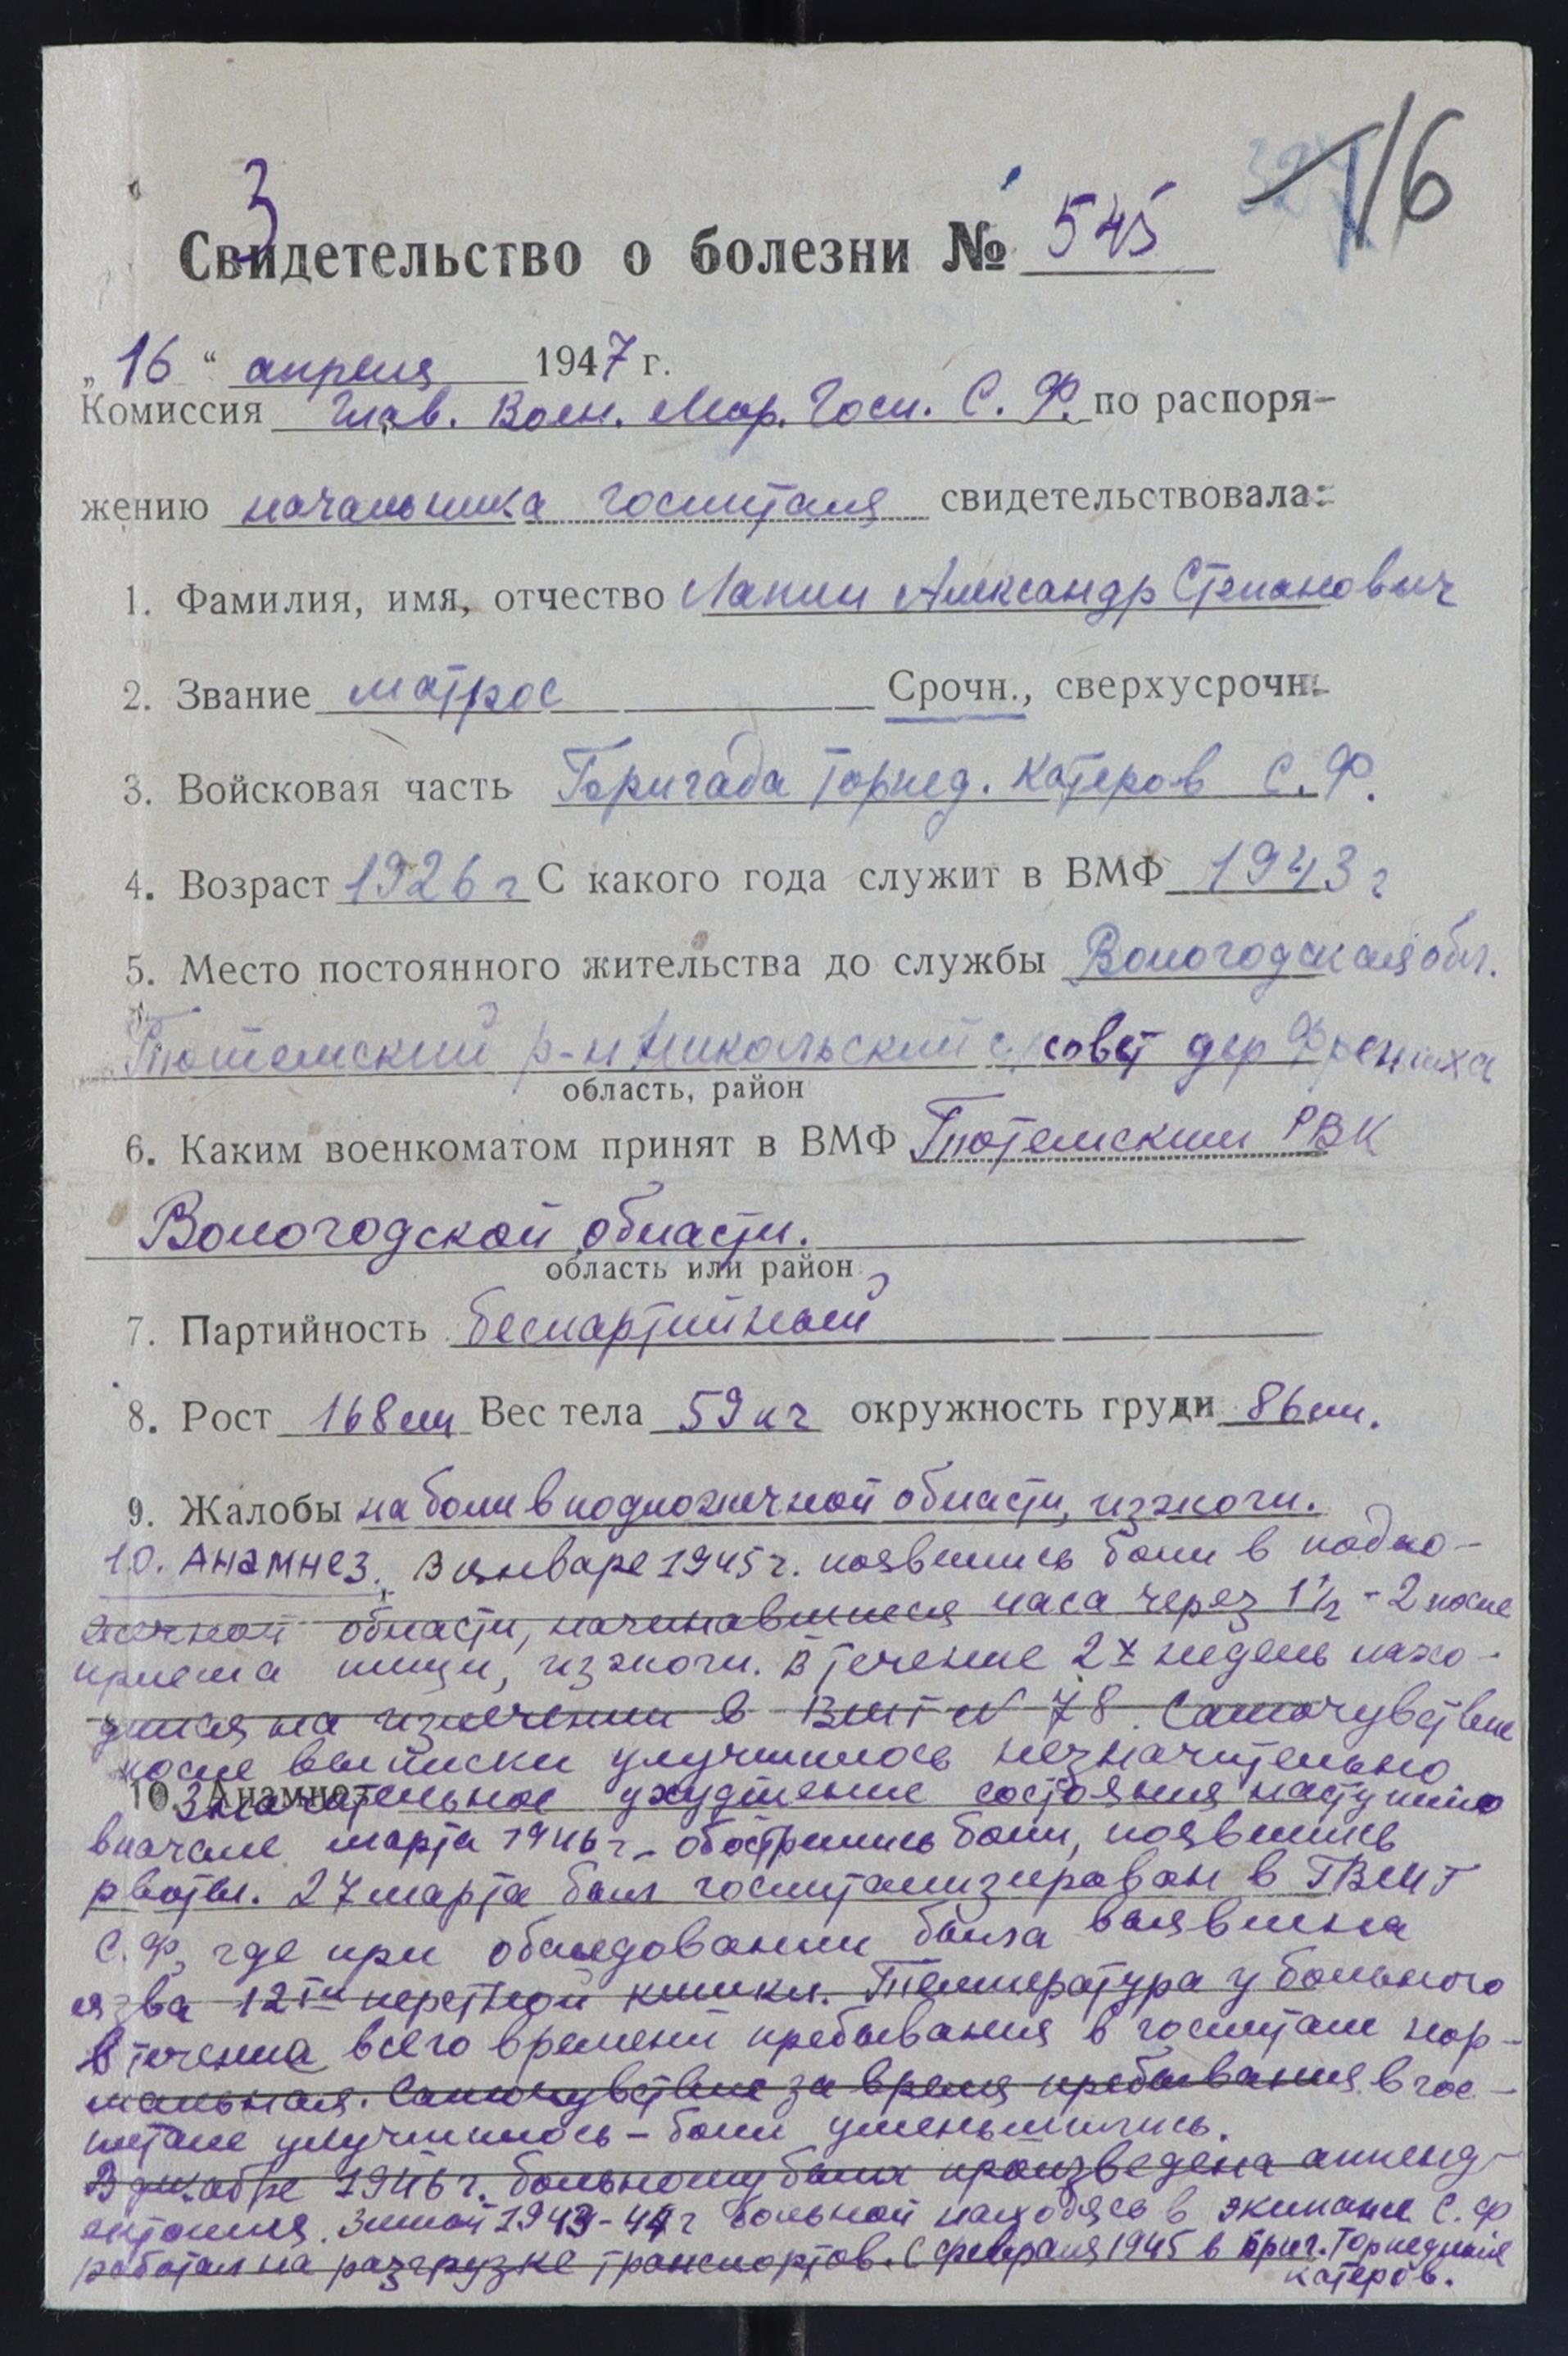 3
16
Свидетельство о болезни № 545
„16“ апреля 1947 г.
Комиссия Глав. Воен. Мор. Госп. С. Ф. по распоря-
жению начальника госпиталя свидетельствовала:
1. Фамилия, имя, отчество Лапин Александр Степанович
2. Звание матрос Срочн., сверхусрочн.
3. Войсковая часть Бригада торпед. катеров С. Ф.
4. Возраст 1926 г С какого года служит в ВМФ 1943 г
5. Место постоянного жительства до службы Вологодская обл.
Тотемский р-н Никольский с/совет дер
область, район
6. Каким военкоматом принят в ВМФ Тотемским РВК
Вологодской области.
область или район
7. Партийность беспартийный
8. Рост 168 см Вес тела 59 кг окружность груди 86 см.
9. Жалобы на боли в подложечной области, изжоги.
10. Анамнез. В январе 1945 г. появились боли в подло-
жечной области, начинавшиеся часа через 1½ - 2 после
приема пищи, изжоги. В течение 2х недель нахо-
дился на излечении в ВМГ № 78. Самочувствие
после выписки улучшилось незначительно
10. Анамнез
Значительное ухудшение состояния наступило
вначале марта 1946 г - обострились боли, появились
рвоты. 27 марта был госпитализирован в ГВМГ
С. Ф, где при обследовании была выявлена
язва 12ти перстной кишки. Температура у больного
в течение всего времени пребывания в госпитале нор-
мальная. Самочувствие за время пребывания в гос-
питале улучшилось - боли уменьшились.
В декабре 1946 г. больному была произведена аппенд-
эктомия. Зимой 1943-44 г больной находясь в экипаже С. Ф
работал на разгрузке транспортов. С февраля 1945 в бриг. Торпедных
катеров.